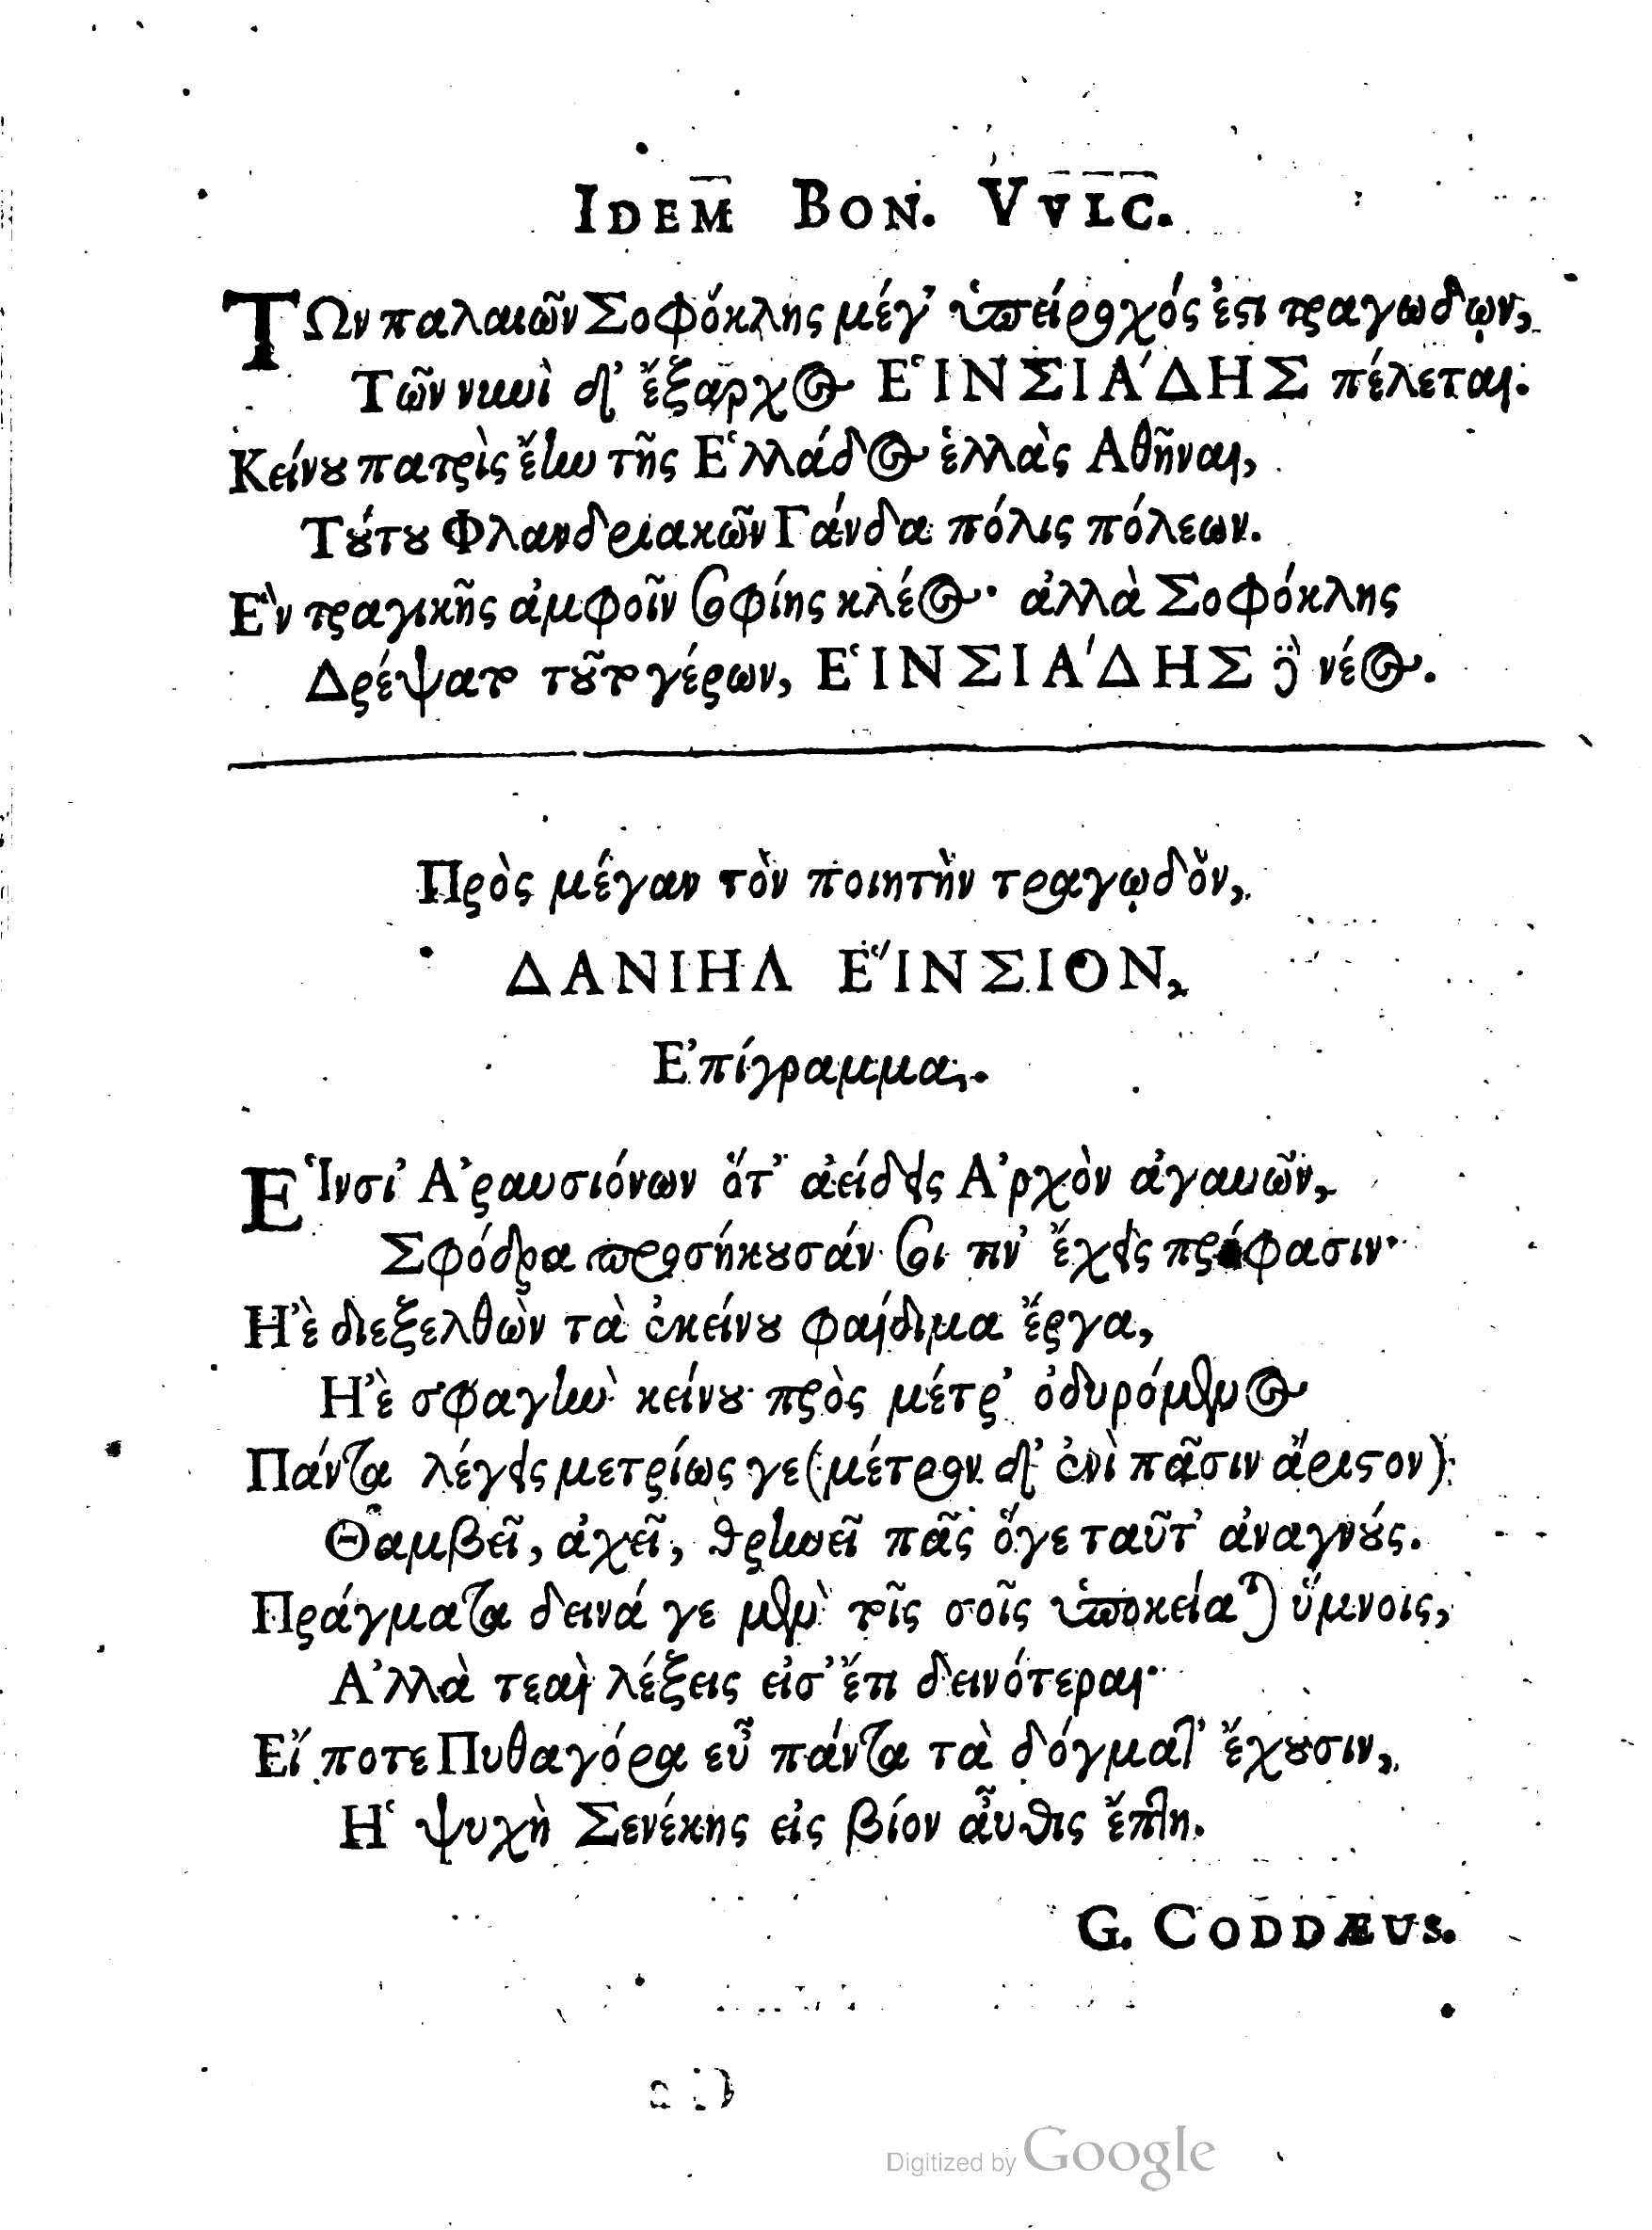 IDEM BON. VVLC.
ΤΩν παλαιῶν Σοφόκλης μέγ' ὑπείροχός ἐστι τραγῳδῶν,
Τῶν νυνὶ δ' ἔξαρχος ΕἹΝΣΙΆΔΗΣ πέλεται·
Κείνου πατρὶς ἔην τῆς Ἑλλάδος ἑλλὰς Ἀθῆναι,
Τούτου Φλανδριακῶν Γάνδα πόλις πόλεων.
Ἐν τραγικῆς ἀμφοῖν σοφίης κλέος· ἀλλὰ Σοφόκλης
Δρέψατο τοῦτο γέρων, ΕἹΝΣΙΆΔΗΣ δὲ νέος.
Πρὸς μέγαν τὸν ποιητὴν τραγῳδὸν,
ΔΑΝΙΗΛ ΕἵΝΣΙΟΝ,
Ἐπίγραμμα.
ΕἹνσι' Ἀραυσιόνων ὅτ' ἀείδεις Ἀρχὸν ἀγαυῶν,
Σφόδρα προσήκουσάν σοι τιν' ἔχεις πρόφασιν·
Ἠὲ διεξελθὼν τὰ ἐκείνου φαίδιμα ἔργα,
Ἠὲ σφαγὴν κείνου πρὸς μέτρ' ὀδυρόμενος
Πάντα λέγεις μετρίως γε (μέτρον δ' ἐνὶ πᾶσιν ἄριστον)
Θαμβεῖ, ἀχεῖ, θρηνεῖ πᾶς ὅγε ταῦτ' ἀναγνούς.
Πράγματα δεινά γε μὲν τοῖς σοῖς ὑποκείαται ὕμνοις,
Ἀλλὰ τεαὶ λέξεις εἰσ' ἔτι δεινότεραι·
Εἴ ποτε Πυθαγόρα εὖ πάντα τὰ δόγματ' ἔχουσιν,
Ἡ ψυχὴ Σενέκης εἰς βίον αὖθις ἔπτη.
G. CODDÆUS.
Digitized by Google